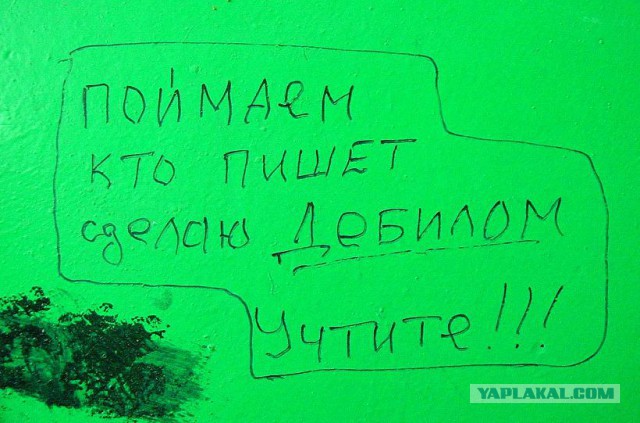 ПОЙМАЕМ
КТО ПИШЕТ
сделаю ДЕБИЛОМ
Учтите!!!
YAPLAKAL.COM